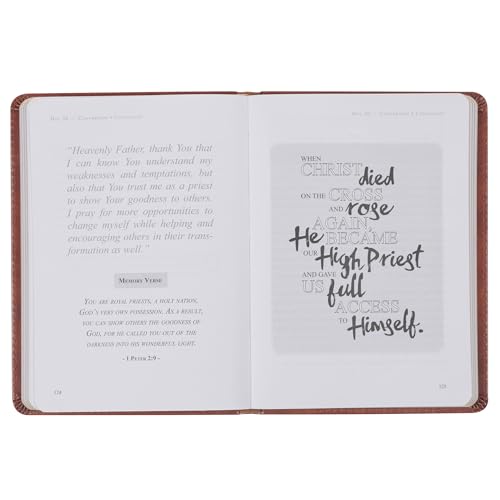 "Heavenly Father, thank You that
I can know You understand my
weaknesses and temptations, but
also that You trust me as a priest
to show Your goodness to others.
I pray for more opportunities to
change myself while helping and
encouraging others in their trans-
formation as well."
MEMORY VERSE
YOU ARE ROYAL PRIESTS, A HOLY NATION,
GOD'S VERY OWN POSSESSION. AS A RESULT,
YOU CAN SHOW OTHERS THE GOODNESS OF
GOD, FOR HE CALLED YOU OUT OF THE
DARKNESS INTO HIS WONDERFUL LIGHT.
- 1 PETER 2:9 -
124
WHEN
CHRIST died
ON THE CROSS
AND rose
AGAIN,
He BECAME
OUR High Priest
AND GAVE
US full
ACCESS
TO Himself.
125